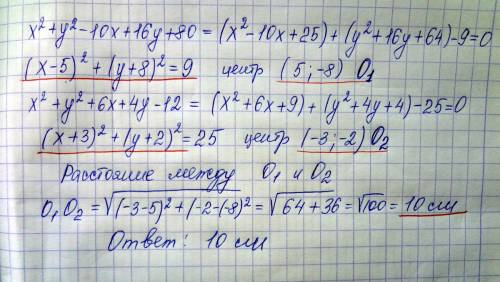 x²+y²-10x+16y+80 = (x²-10x+25)+(y²+16y+64)-9=0
(x-5)²+(y+8)²=9 центр (5;-8) O₁
x²+y²+6x+4y-12 = (x²+6x+9)+(y²+4y+4)-25=0
(x+3)²+(y+2)²=25 центр (-3;-2) O₂
Расстояние между O₁ и O₂
O₁O₂=√(-3-5)²+(-2-(-8)²=√64+36=√100=10 см
Ответ: 10 см